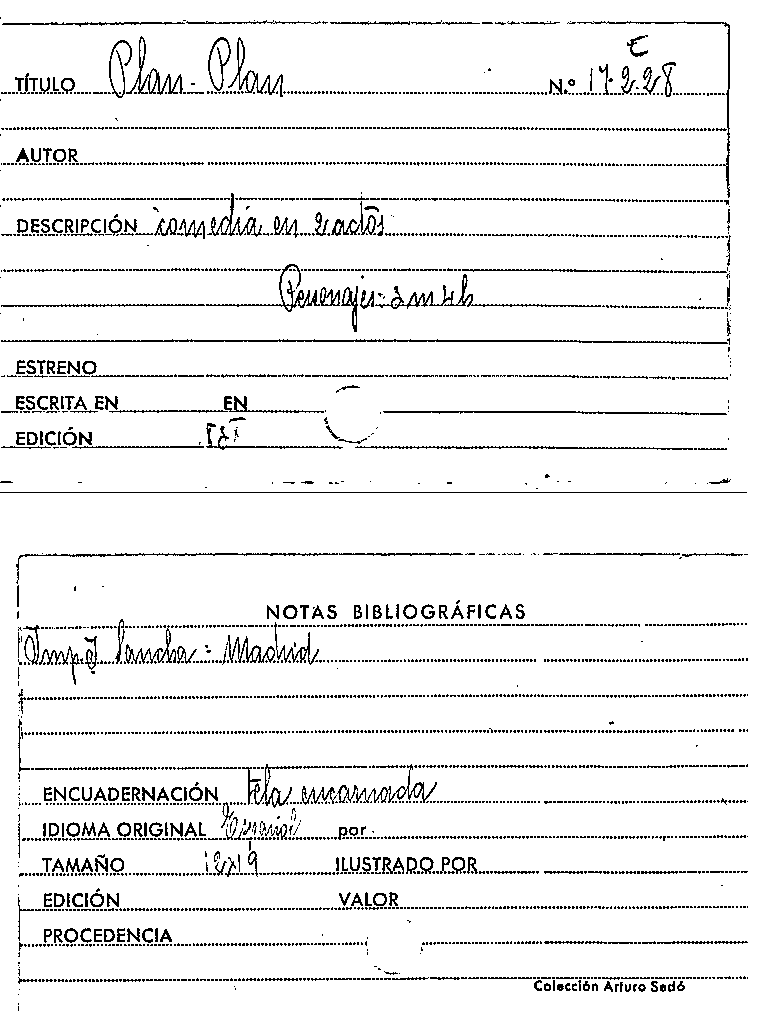 E
TÍTULO Plan-Plan N.º 17-2-28
AUTOR
DESCRIPCIÓN comedia en 2 actos
Personajes: 2 m 4 h
ESTRENO
ESCRITA EN EN
EDICIÓN
NOTAS BIBLIOGRÁFICAS
Sancha = Madrid
ENCUADERNACIÓN tela encarnada
IDIOMA ORIGINAL Español por
TAMAÑO 12x19 ILUSTRADO POR
EDICIÓN VALOR
PROCEDENCIA
Colección Arturo Sedó